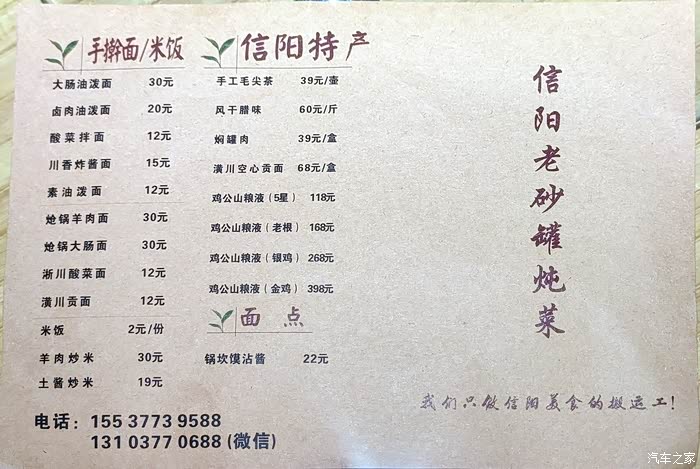 手擀面/米饭
大肠油泼面 30元
卤肉油泼面 20元
酸菜拌面 12元
川香炸酱面 15元
素油泼面 12元
炝锅羊肉面 30元
炝锅大肠面 30元
淅川酸菜面 12元
潢川贡面 12元
米饭 2元/份
羊肉炒米 30元
土酱炒米 19元
信阳特产
手工毛尖茶 39元/壶
风干腊味 60元/斤
焖罐肉 39元/盒
潢川空心贡面 68元/盒
鸡公山粮液（5星） 118元
鸡公山粮液（老根） 168元
鸡公山粮液（银鸡） 268元
鸡公山粮液（金鸡） 398元
面点
锅坎馍沾酱 22元
电话：155 3773 9588
131 0377 0688 (微信)
信阳老砂罐炖菜
我们只做信阳美食的搬运工!
汽车之家